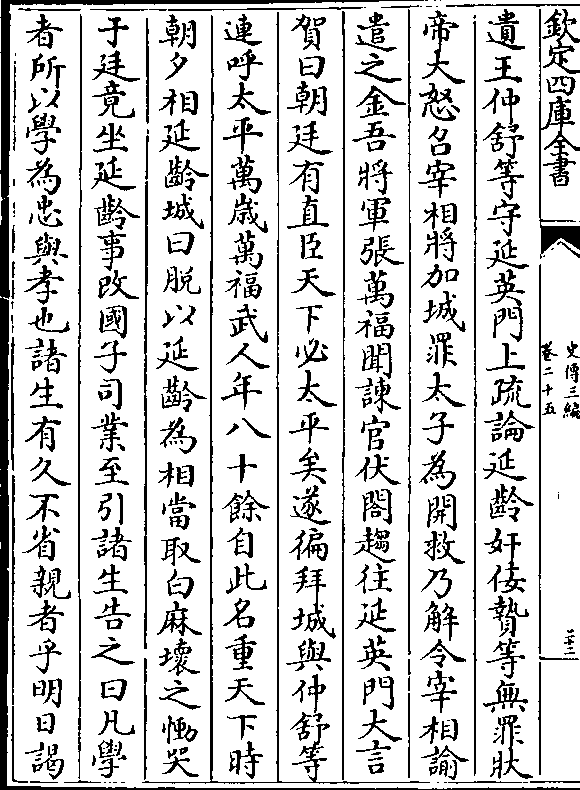 欽定四庫全書
史傳三編
卷二十五
二十二
遺王仲舒等守延英門上疏論延齡奸佞贄等無罪狀
帝大怒召宰相將加城罪太子為開救乃解令宰相諭
遣之金吾將軍張萬福聞諫官伏閤趨往延英門大言
賀曰朝廷有直臣天下必太平矣遂徧拜城與仲舒等
連呼太平萬歲萬福武人年八十餘自此名重天下時
朝夕相延齡城曰脫以延齡為相當取白麻壞之慟哭
于廷竟坐延齡事改國子司業至引諸生告之曰凡學
者所以學為忠與孝也諸生有久不省親者乎明日謁